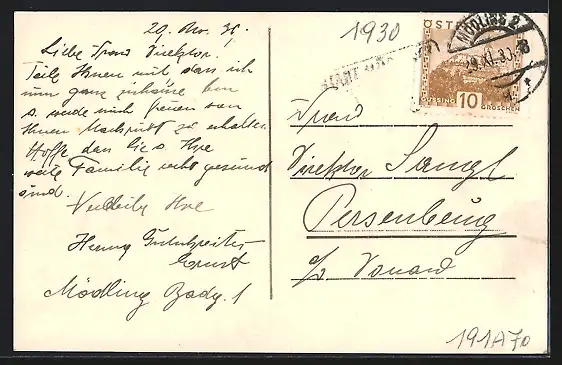 29. Nov. 30.
Liebe Frau Direktor!
Teile Ihnen mit dass ich
nun ganz zuhause bin
u. würde mich freuen von
Ihnen Nachricht zu erhalten.
Hoffe dass Sie u. Ihre
werte Familie recht gesund
sind.
Verbleibe Ihre
Henny
Ernst
Mödling Badg. 1
1930
ÖSTERR
MÖDLING 2
29.XI.30
GÜSSING 10 GROSCHEN
Frau
Direktor
Persenbeug
a/d Donau
191A70